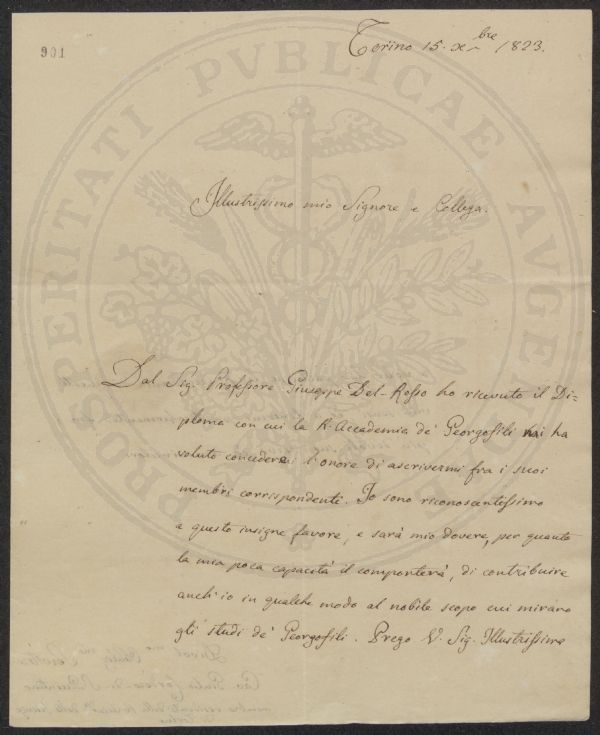 901
Torino 15. xbre 1823.
Illustrissimo mio Signore e Collega.
Dal Sig. Professore Giuseppe Del-Rosso ho ricevuto il Di=
ploma con cui la R. Accademia de' Georgofili mi ha
voluto concedere l'onore di ascrivermi fra i suoi
membri corrispondenti. Io sono riconoscentissimo
a questo insigne favore, e sarà mio dovere, per quanto
la mia poca capacità il comporterà, di contribuire
anch'io in qualche modo al nobile scopo cui mirano
gli studi de' Georgofili. Prego V. Sig. Illustrissima
PROSPERITATI PVBLICAE AVGENDAE